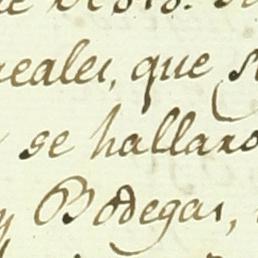 reales, que
se hallaro
y Bodegas,